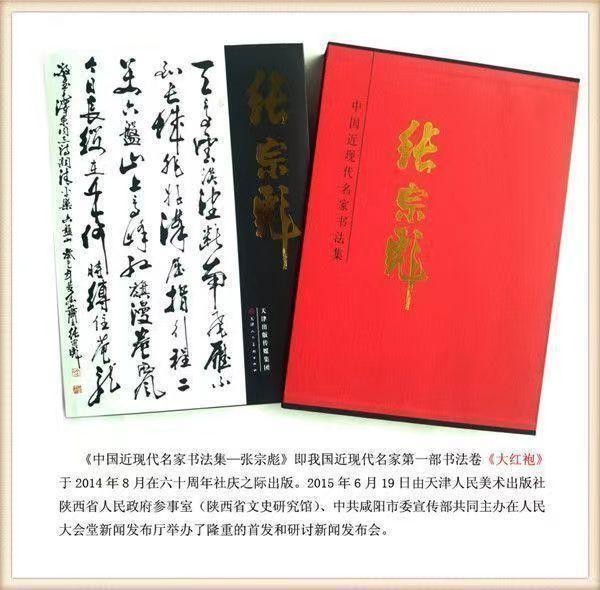 天高云淡望断南飞雁不
到长城非好汉屈指行程二
万六盘山上高峰红旗漫卷西风
今日長缨在手何時缚住苍龙
张宗彪
天津出版传媒集团
天津人民美术出版社
中国近现代名家书法集
张宗彪
《中国近现代名家书法集—张宗彪》即我国近现代名家第一部书法卷《大红袍》
于2014年8月在六十周年社庆之际出版。2015年6月19日由天津人民美术出版社
陕西省人民政府参事室（陕西省文史研究馆）、中共咸阳市委宣传部共同主办在人民
大会堂新闻发布厅举办了隆重的首发和研讨新闻发布会。